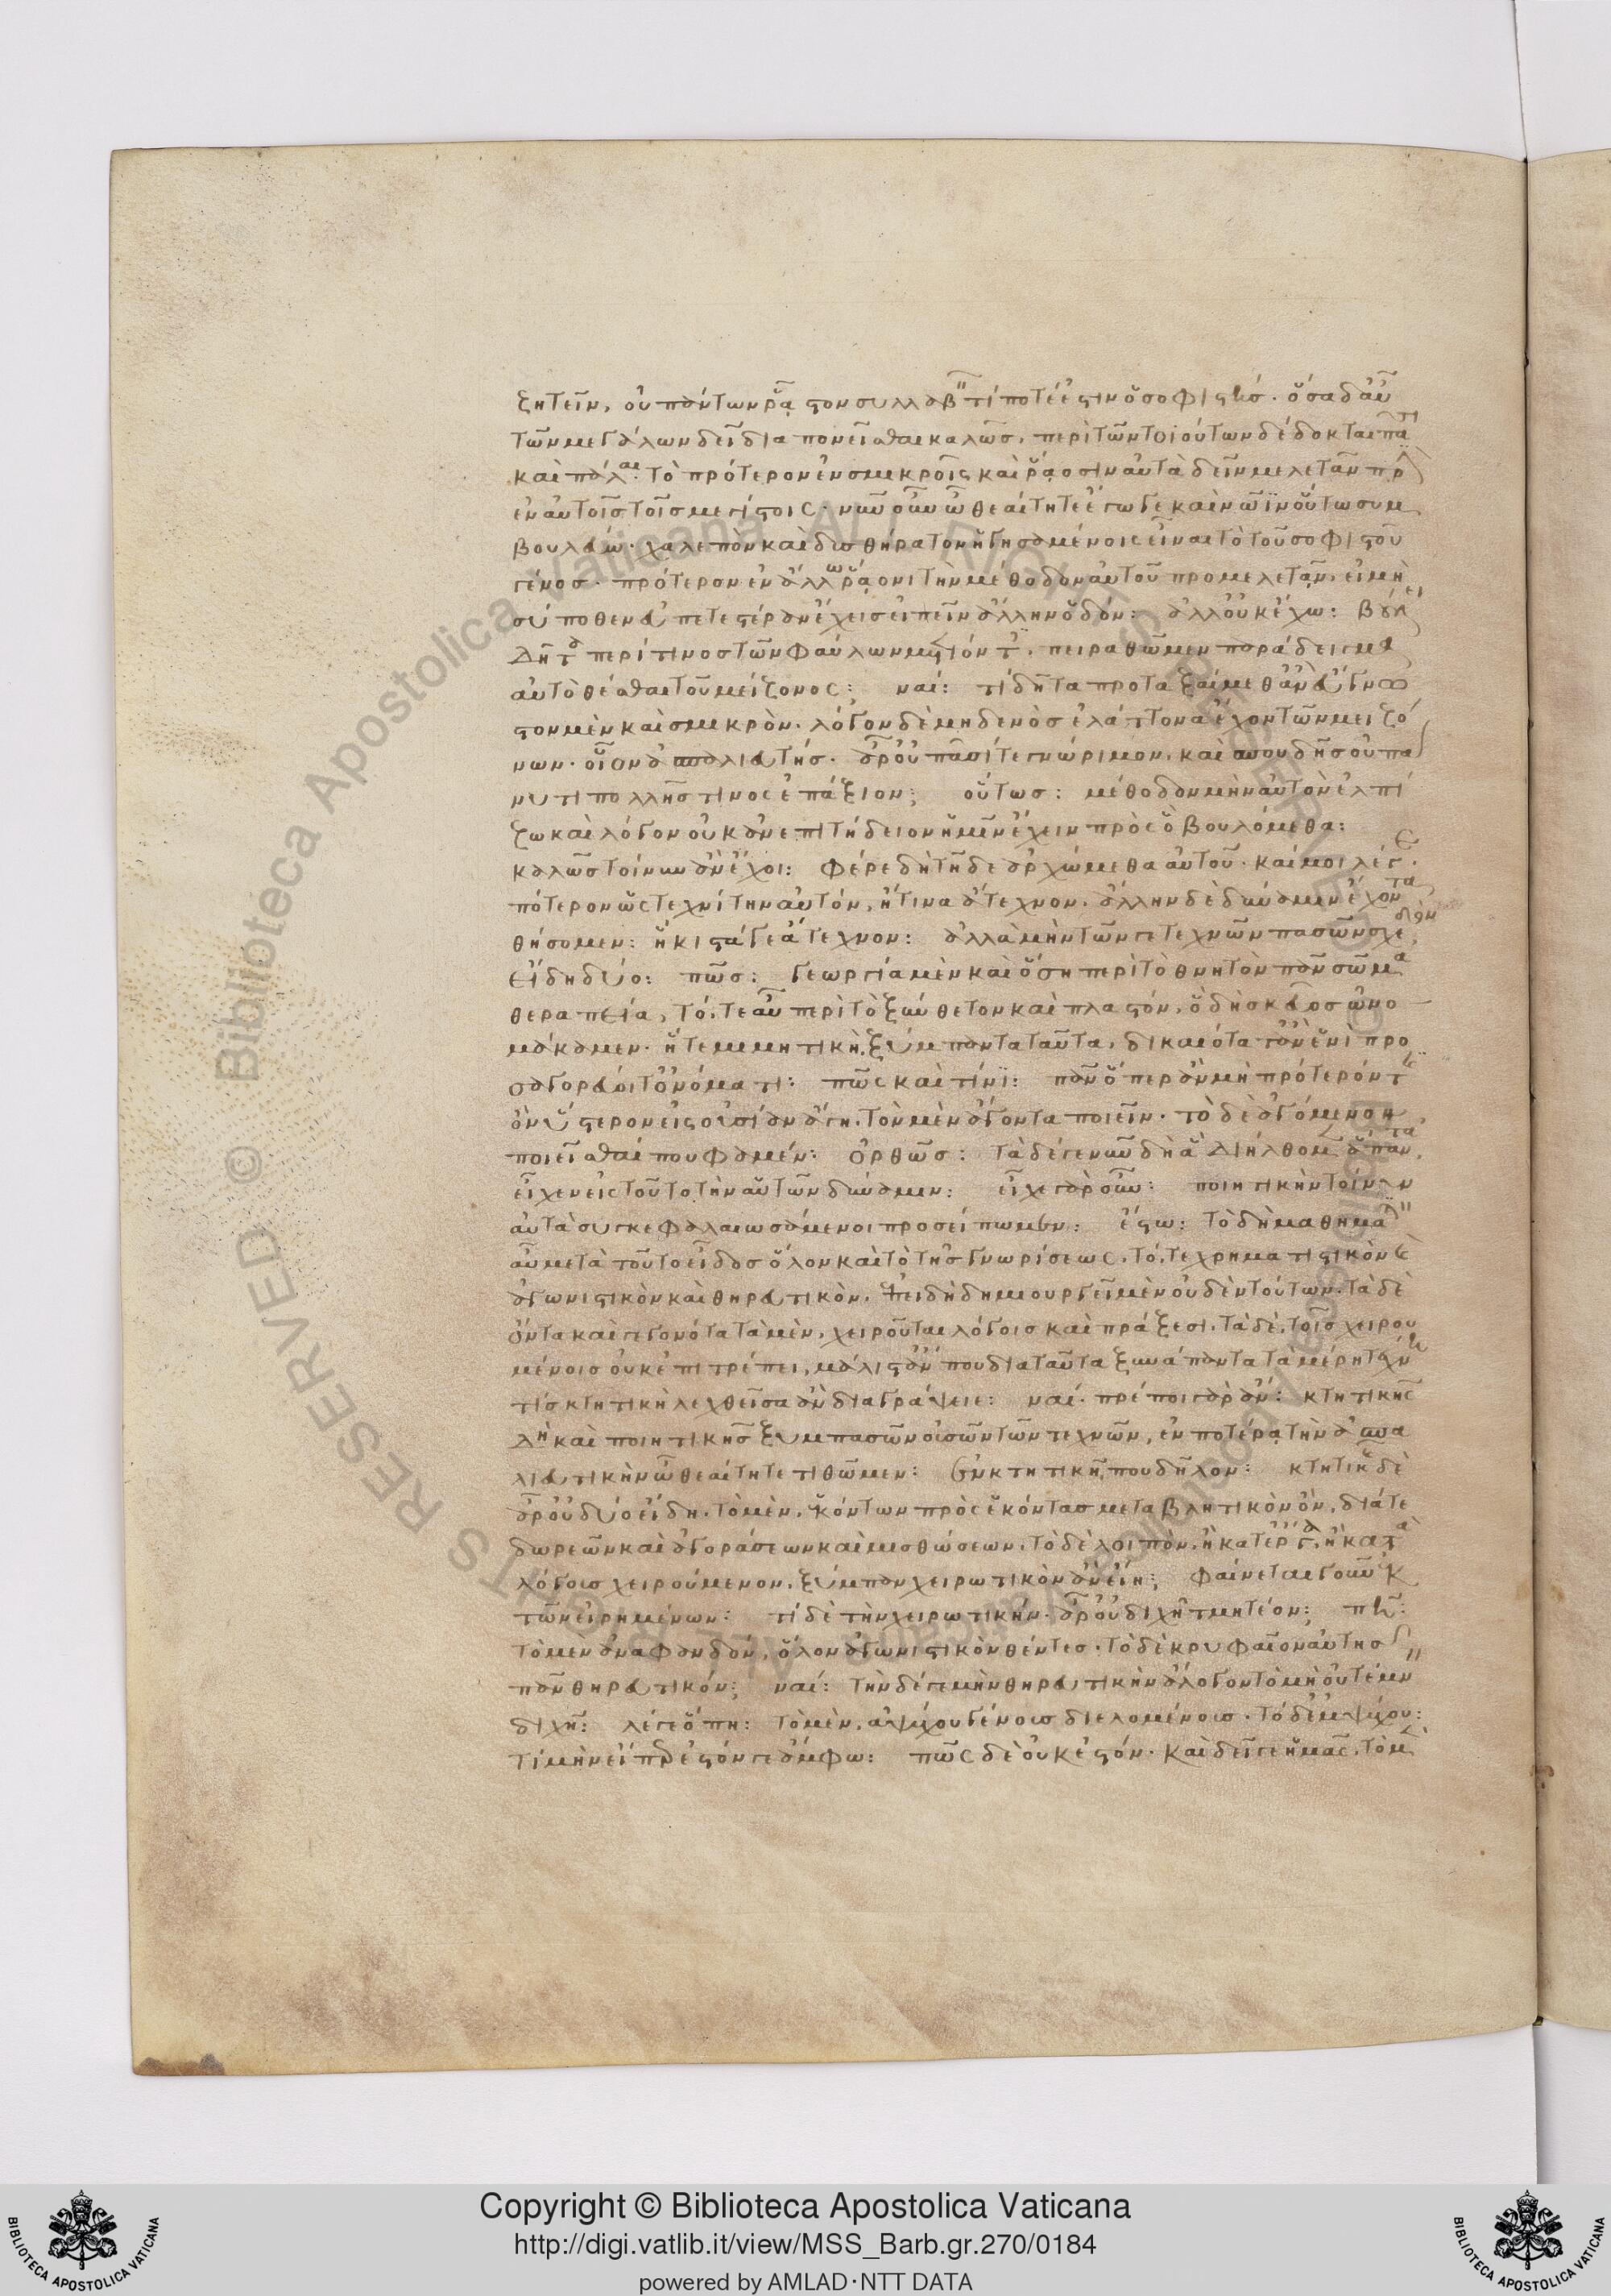 ζητεῖν, οὐ πάντων ῥᾷστον συλλαβεῖν τί ποτ' ἔστιν ὁ σοφιστής. ὅσα δ' αὖ
τῶν μεγάλων δεῖ διαπονεῖσθαι καλῶς, περὶ τῶν τοιούτων δέδοκται πᾶσι
καὶ πάλαι τὸ πρότερον ἐν σμικροῖς καὶ ῥᾴοσιν αὐτὰ δεῖν μελετᾶν πρὶν
ἐν αὐτοῖς τοῖς μεγίστοις. νῦν οὖν ὦ Θεαίτητε ἔγωγε καὶ νῶϊν οὕτω συμ
βουλεύω. χαλεπὸν καὶ δυσθήρατον ἡγησαμένοις εἶναι τὸ τοῦ σοφιστοῦ
γένος. πρότερον ἐν ἄλλῳ ῥᾴονι τὴν μέθοδον αὐτοῦ προμελετᾶν, εἰ μὴ
σύ ποθεν εὐπετεστέραν ἔχεις εἰπεῖν ἄλλην ὁδόν: ἀλλ' οὐκ ἔχω: βούλει
δῆτα περί τινος τῶν φαύλων μετιόντες, πειραθῶμεν παράδειγμα
αὐτὸ θέσθαι τοῦ μείζονος: ναί: τί δῆτα προταξαίμεθ' ἂν εὔγνω
στον μὲν καὶ σμικρὸν. λόγον δὲ μηδενὸς ἐλάττονα ἔχον τῶν μειζό
νων. οἷον ἀσπαλιευτής. ἆρ' οὐ πᾶσί τε γνώριμον, καὶ σπουδῆς οὐ πά
νυ τι πολλῆς τινος ἐπάξιον; οὕτως: μέθοδον μὴν αὐτὸν ἐλπί
ζω καὶ λόγον οὐκ ἀνεπιτήδειον ἡμῖν ἔχειν πρὸς ὃ βουλόμεθα:
καλῶς τοίνυν ἂν ἔχοι: φέρε δὴ τῇδε ἀρχώμεθα αὐτοῦ. καί μοι λέγε.
πότερον ὡς τεχνίτην αὐτόν, ἤ τινα ἄτεχνον. ἄλλην δὲ δύναμιν ἔχοντα
θήσομεν: ἥκιστά γε ἄτεχνον: ἀλλὰ μὴν τῶν γε τεχνῶν πασῶν σχεδὸν
εἴδη δύο: πῶς: γεωργία μὲν καὶ ὅση περὶ τὸ θνητὸν πᾶν σῶμα
θεραπεία, τό, τε αὖ περὶ τὸ ξύνθετον καὶ πλαστόν, ὃ δὴ σκεῦος ὠνο
μάκαμεν. ἥ τε μιμητικὴ. ξύμπαντα ταῦτα, δικαιότατ' ἂν ἑνὶ προσ
αγορεύοιτ' ὀνόματι: πῶς καὶ τίνι: πᾶν ὅπερ ἂν μὴ πρότερόν τις
ὂν ὕστερον εἰς οὐσίαν ἄγῃ. τὸν μὲν ἄγοντα ποιεῖν. τὸ δὲ ἀγόμενον
ποιεῖσθαί που φαμέν: ὀρθῶς: τὰ δέ γε νῦν δὴ ἃ διήλθομεν ἅπαντα,
εἶχεν εἰς τοῦτο τὴν αὑτῶν δύναμιν: εἶχε γὰρ οὖν: ποιητικὴν τοίνυν
αὐτὰ συγκεφαλαιωσάμενοι προσείπωμεν: ἔστω: τὸ δὴ μαθηματικὸν
αὖ μετὰ τοῦτο εἶδος ὅλον καὶ τὸ τῆς γνωρίσεως. τό, τε χρηματιστικὸν καὶ
ἀγωνιστικὸν καὶ θηρευτικὸν. ἐπειδὴ δημιουργεῖ μὲν οὐδὲν τούτων. τὰ δὲ
ὄντα καὶ γεγονότα τὰ μὲν, χειροῦται λόγοις καὶ πράξεσι, τὰ δὲ, τοῖς χειρου
μένοις οὐκ ἐπιτρέπει, μάλιστ' ἄν που διὰ ταῦτα ξυνάπαντα τὰ μέρη τέχνη
τις κτητικὴ λεχθεῖσα ἂν διαγράψειε: ναί. πρέποι γὰρ ἄν: κτητικῆς
δὴ καὶ ποιητικῆς ξυμπασῶν οὐσῶν τῶν τεχνῶν, ἐν ποτέρᾳ τὴν ἀσπα
λιευτικὴν ὦ Θεαίτητε τιθῶμεν: ἐν κτητικῇ που δῆλον: κτητικῆς δὲ
ἆρ' οὐ δύο εἴδη. τὸ μὲν, ἑκόντων πρὸς ἑκόντας μεταβλητικὸν ὄν, διά τε
δωρεῶν καὶ ἀγοράσεων καὶ μισθώσεων. τὸ δὲ λοιπὸν, ἢ κατ' ἔργα, ἢ κατὰ
λόγους χειρούμενον, ξύμπαν χειρωτικὸν ἂν εἴη; φαίνεται γοῦν ἐκ
τῶν εἰρημένων: τί δὲ τὴν χειρωτικήν. ἆρ' οὐ διχῇ τμητέον: πῇ:
τὸ μὲν ἀναφανδὸν, ὅλον ἀγωνιστικὸν θέντες. τὸ δὲ κρυφαῖον αὐτῆς
πᾶν θηρευτικόν; ναί: τὴν δέ γε μὴν θηρευτικὴν ἄλογον τὸ μὴ οὐ τέμνειν
διχῇ: λέγε ὅπῃ: τὸ μὲν, ἀψύχου γένους διελομένους. τὸ δ' ἐμψύχου:
τί μὴν εἴπερ ἔστόν γε ἄμφω: πῶς δὲ οὐκ ἐστόν. καὶ δεῖ γε ἡμᾶς, τὸ μὲν
Copyright © Biblioteca Apostolica Vaticana
http://digi.vatlib.it/view/MSS_Barb.gr.270/0184
powered by AMLAD·NTT DATA